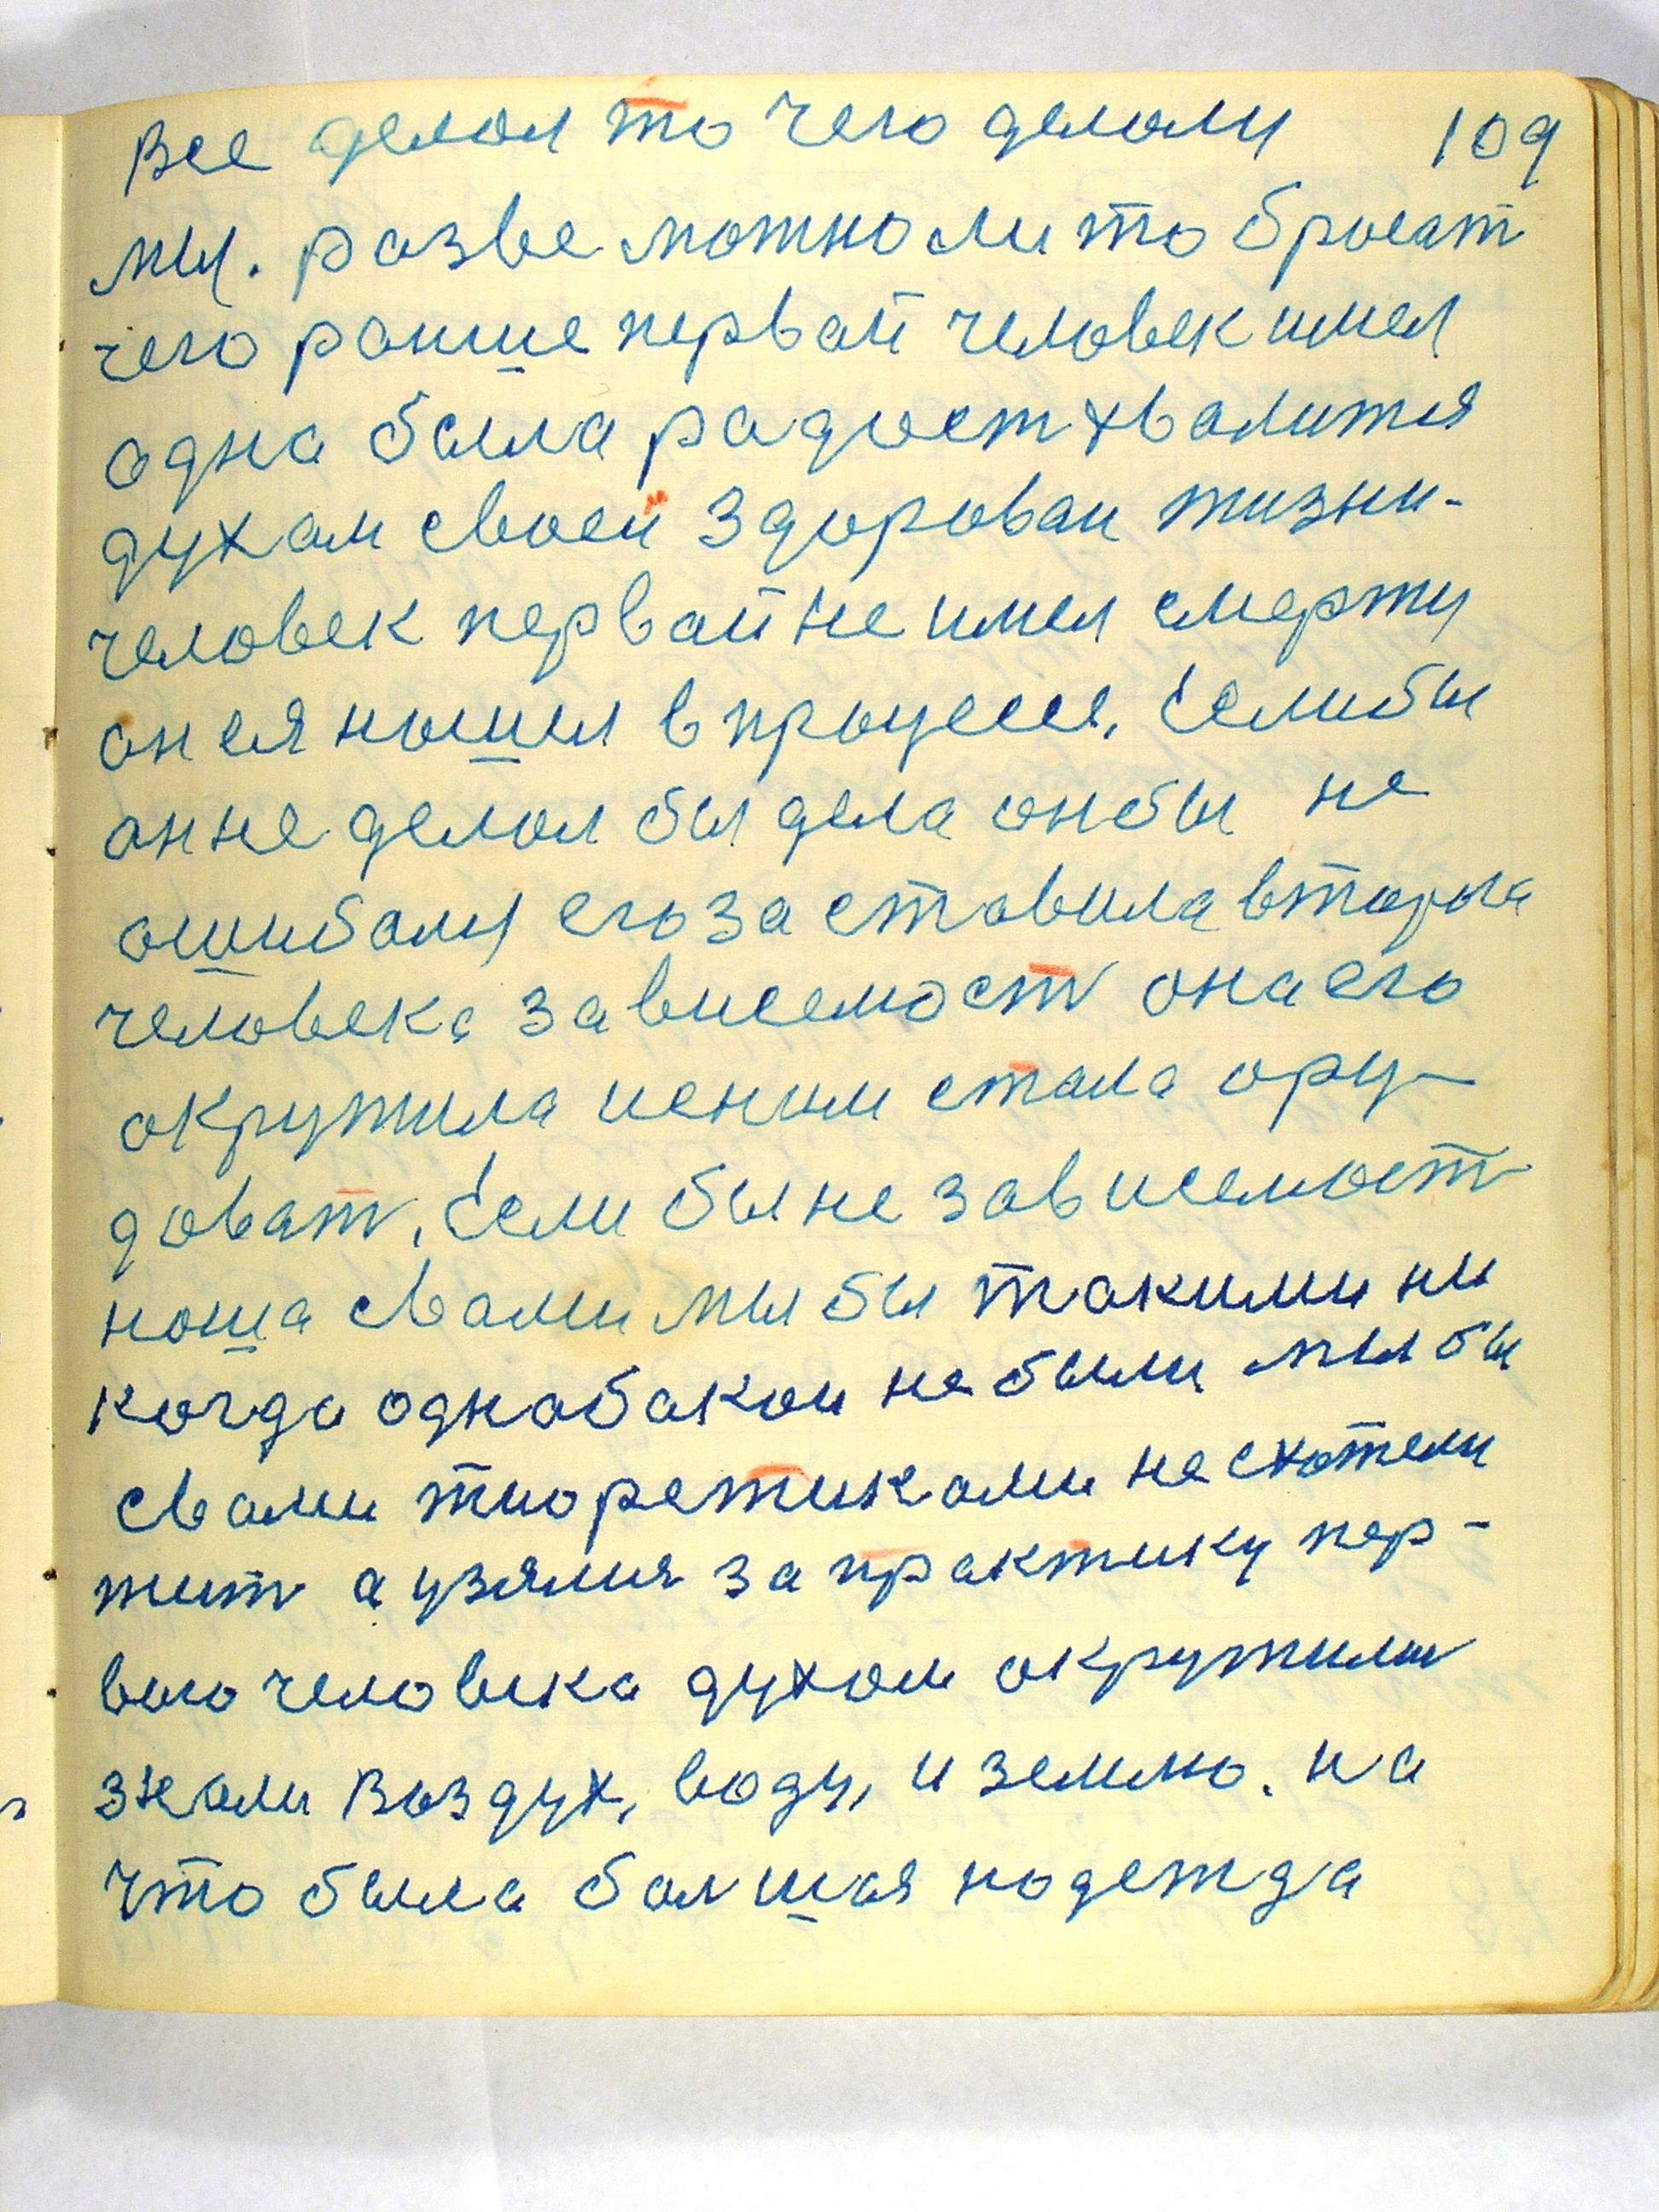 Все делал то чего делали 109
мы. разве можно ли то бросат
чего ранше первай человек имел
одна была радуост хвалится
духам своей здороваи жизни-
человек первай не имел смерти
он ея нашел в процессе. Если бы
он не делал бы дела он бы не
ошибался его заставила второга
человека зависемост она его
окружила и с ним стала ору-
доват. Если бы не зависемост
наша с вами мы бы такими ни
когда однабакои не были мы бы
с вами тиоретиками не схотели
жит а узялися за практику пер-
вого человека духом окружили
знали воздух, воду, и землю. на
что была балшая надежда